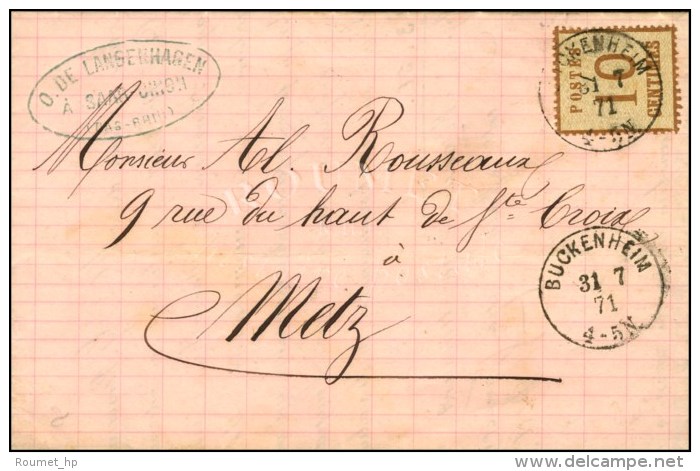 O. DE LANGENHAGEN
À SAAR-UNION
(BAS-RHIN)
BUCKENHEIM
31 7
71
4-5N.
POSTES
10
CENTIMES
Monsieur Al. Rousseaux
9 rue du haut de Ste Croix
à
Metz
BUCKENHEIM
31 7
71
4-5N.
Roumet_hp
delcampe.net